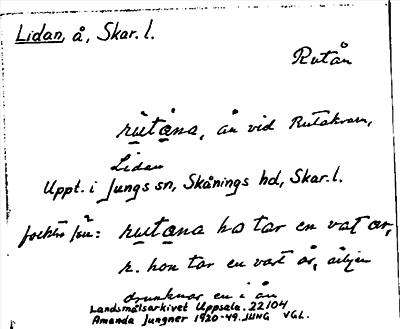 Lidan, å, Skar. l.
Rutån
rutåna, ån vid Rutakvarn,
Lidan
Uppt. i Jungs sn, Skånings hd, Skar. l.
rutåna ho tar en vart år,
r. hon tar en vart år,
drunknar en i ån
Landsmålsarkivet Uppsala. 22104
Amanda Jungner 1920-49. JUNG VGL.